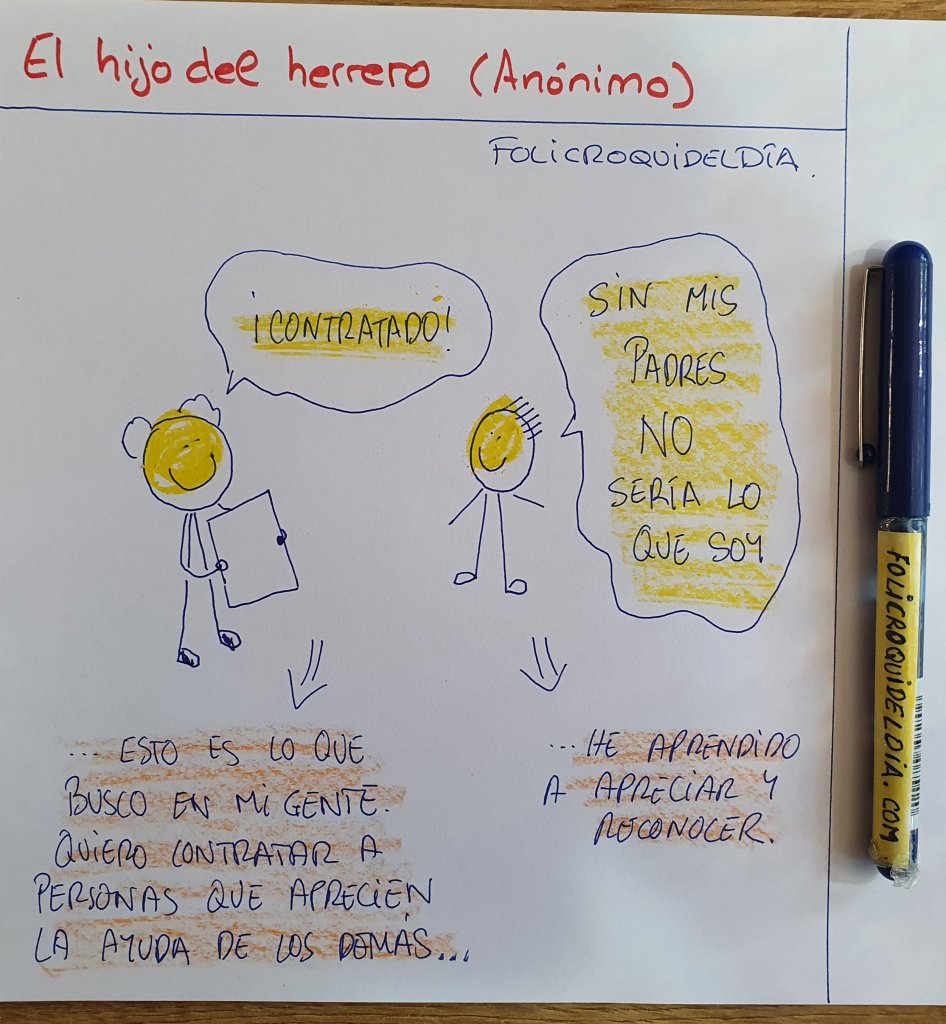 El hijo del herrero (Anónimo)
FOLICROQUIDELDÍA.
¡CONTRATADO!
SIN MIS
PADRES
NO
SERÍA LO
QUE SOY
... ESTO ES LO QUE
BUSCO EN MI GENTE.
QUIERO CONTRATAR A
PERSONAS QUE APRECIEN
LA AYUDA DE LOS DEMÁS...
... HE APRENDIDO
A APRECIAR Y
RECONOCER.
FOLICROQUIDELDIA.COM